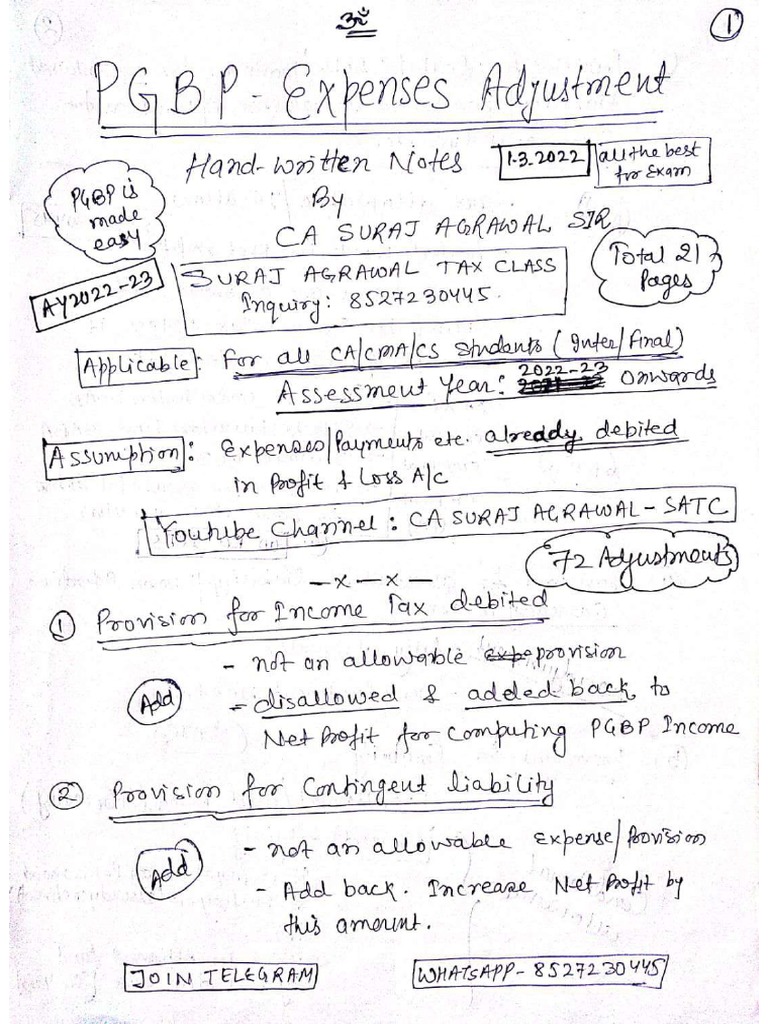 ॐ
①
PGBP - Expenses Adjustment
Hand-written Notes
1.3.2022
all the best
for Exam
PGBP is
made
easy
By
CA SURAJ AGRAWAL SIR
Total 21
Pages
AY2022-23
SURAJ AGRAWAL TAX CLASS
Inquiry: 8527230445.
Applicable: For all CA/CMA/CS students (Inter/Final)
Assessment Year: 2022-23 onwards
Assumption: Expenses/Payments etc. already debited
in Profit & Loss A/C
Youtube Channel: CA SURAJ AGRAWAL - SATC
72 Adjustments
-x-x-
① Provision for Income Tax debited
- not an allowable provision
Add
- disallowed & added back to
Net Profit for computing PGBP Income
② Provision for Contingent liability
Add
- not an allowable Expense/Provision
- Add back. Increase Net Profit by
this amount.
JOIN TELEGRAM
WHATSAPP - 8527230445